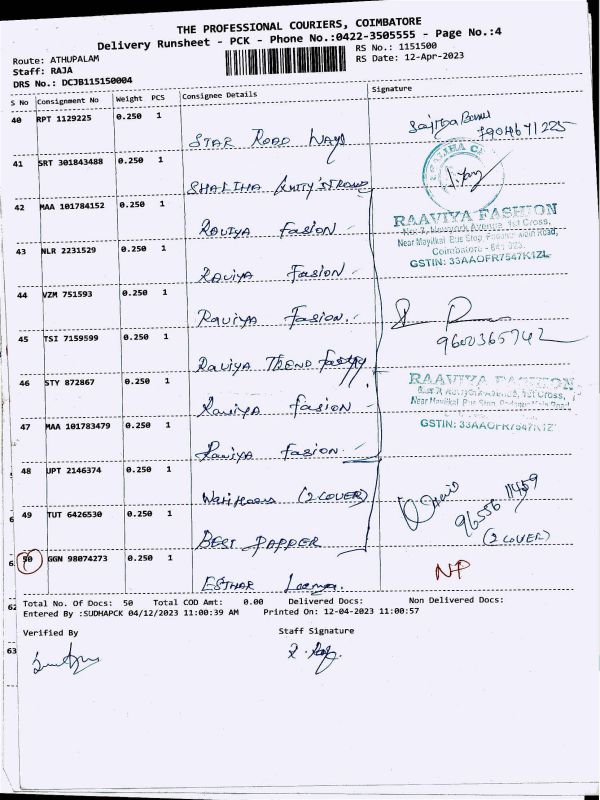 THE PROFESSIONAL COURIERS, COIMBATORE
Delivery Runsheet - PCK - Phone No.:0422-3505555 - Page No.:4
Route: ATHUPALAM
RS No.: 1151500
Staff: RAJA
RS Date: 12-Apr-2023
DRS No.: DCJB115150004
S No Consignment No Weight PCS Consignee Details Signature
40 RPT 1129225 0.250 1
STAR ROAD WAYS
7904671225
41 SRT 301843488 0.250 1
SHALIHA
42 MAA 101784152 0.250 1
RAVIYA FASION
RAAVIYA FASHION
Near Mayilkal Bus Stop, Podanur Main Road,
Coimbatore - 641 023.
GSTIN: 33AAOFR7547K1ZL
43 NLR 2231529 0.250 1
RAVIYA FASION
44 VZM 751593 0.250 1
RAVIYA FASION
9600365742
45 TSI 7159599 0.250 1
RAVIYA TREND
46 STY 872867 0.250 1
RAVIYA FASION
RAAVIYA FASHION
Near Mayilkal Bus Stop, Podanur Main Road
GSTIN: 33AAOFR7547K1Z
47 MAA 101783479 0.250 1
RAVIYA FASION
48 UPT 2146374 0.250 1
(2 COVER)
49 TUT 6426530 0.250 1
96556 11459
(2 COVER)
BEST PAPPER
50 GGN 98074273 0.250 1
NP
ESTHAR
62
Total No. Of Docs: 50 Total COD Amt: 0.00 Delivered Docs: Non Delivered Docs:
Entered By :SUDHAPCK 04/12/2023 11:00:39 AM Printed On: 12-04-2023 11:00:57
Verified By Staff Signature
63